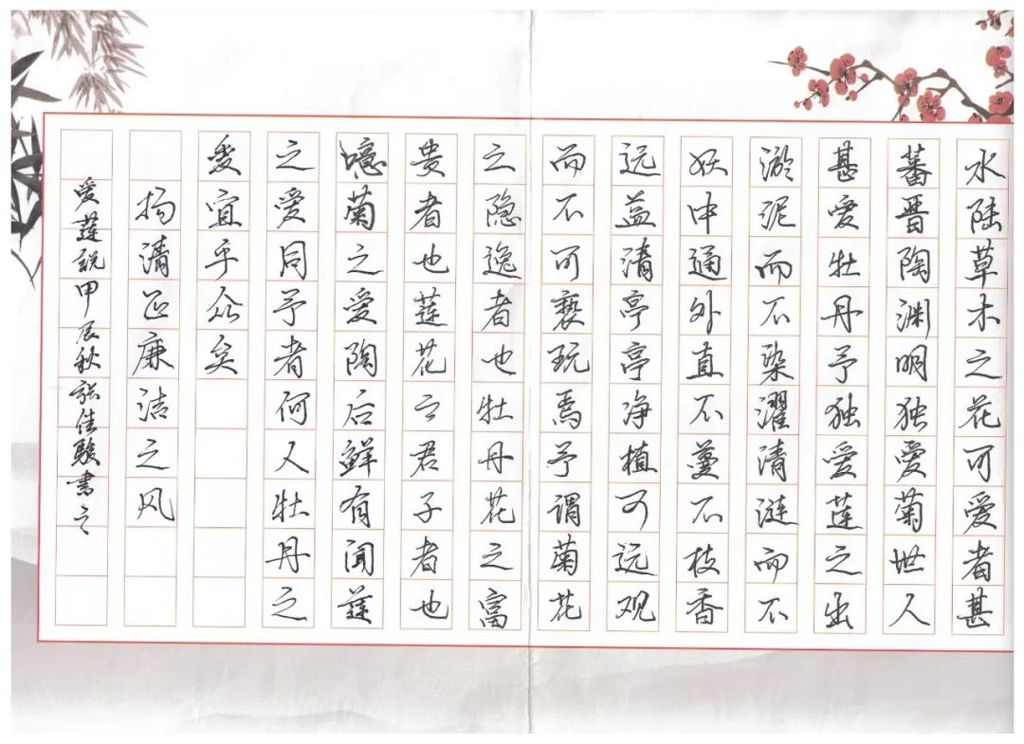 水陆草木之花可爱者甚
蕃晋陶渊明独爱菊世人
甚爱牡丹予独爱莲之出
淤泥而不染濯清涟而不
妖中通外直不蔓不枝香
远益清亭亭净植可远观
而不可亵玩焉予谓菊花
之隐逸者也牡丹花之富
贵者也莲花之君子者也
噫菊之爱陶后鲜有闻莲
之爱同予者何人牡丹之
爱宜乎众矣
扬清正廉洁之风
爱莲说甲辰秋张佳骏书之